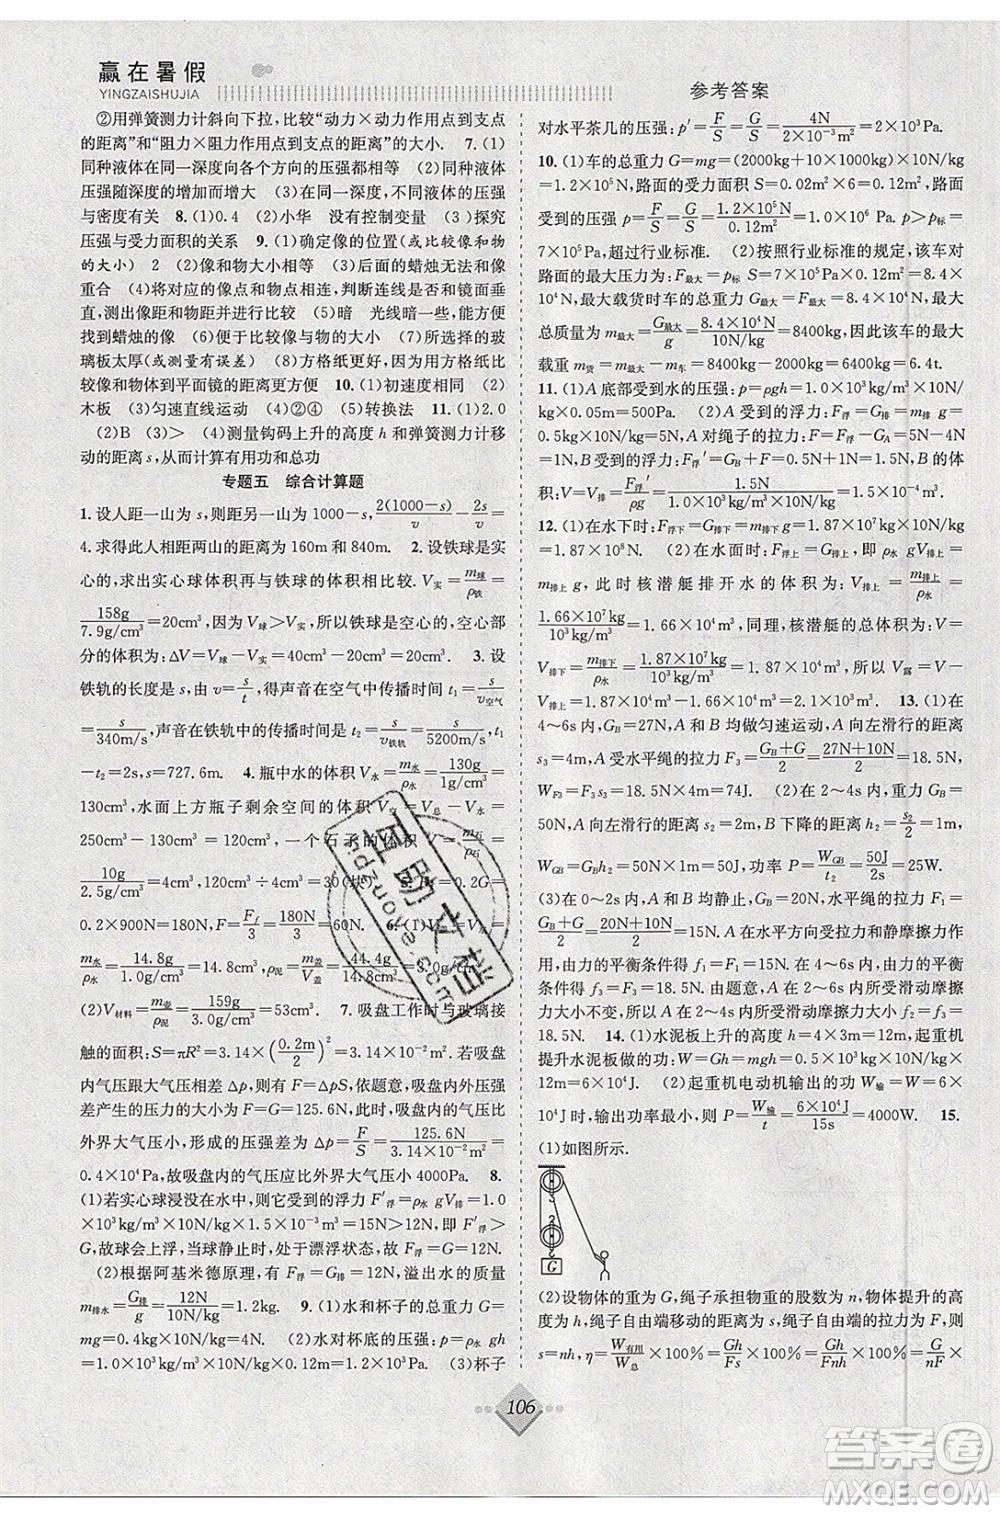 赢在暑假
YINGZAISHUJIA
参考答案
②用弹簧测力计斜向下拉，比较“动力×动力作用点到支点
的距离”和“阻力×阻力作用点到支点的距离”的大小. 7.(1)
同种液体在同一深度向各个方向的压强都相等 (2)同种液体
压强随深度的增大而增大 (3)在同一深度,不同液体的压强
与密度有关 8.(1)0.4 (2)小华 没有控制变量 (3)探究
压强与受力面积的关系 9.(1)确定像的位置(或比较像和物
的大小) 2 (2)像和物大小相等 (3)后面的蜡烛无法与像
重合 (4)将对应的像点和物点相连，判断连线是否和镜面垂
直，测出像距和物距进行比较 (5)暗 光线暗一些，能方便
找到蜡烛的像 (6)便于比较像与物的大小 (7)所选择的玻
璃板太厚(或测量有误差) (8)方格纸好，因为利用方格纸比
较像和物体到平面镜的距离更方便 10.(1)初速度相同 (2)
木板 (3)匀速直线运动 (4)②④ (5)转换法 11.(1)2.0
(2)B (3)> (4)测量钩码上升的高度 h 和弹簧测力计移
动的距离 s,从而计算有用功和总功
专题五 综合计算题
1.设人距一山为 s，则距另一山为 1000-s，2(1000-s)/v-2s/v=
4.求得此人相距两山的距离为 160m 和 840m. 2.设铁球是实
心的，求出实心球体积再与铁球的体积相比较. V实=m球/ρ铁=
158g/7.9g/cm³=20cm³,因为 V球>V实,所以铁球是空心的,空心部
分的体积为:ΔV=V球-V实=30cm³-20cm³=10cm³ 3.设
铁轨的长度是 s，由 v=s/t，得声音在空气中传播时间 t₁=s/v空气=
s/340m/s，声音在铁轨中的传播时间 t₂=s/v铁轨=s/5200m/s,t₁
-t₂=2s,s=727.6m. 4.瓶中水的体积 V水=m水/ρ水=130g/1g/cm³=
130cm³，水面上方瓶子剩余空间的体积 V空=V总-V水=
250cm³-130cm³=120cm³，一个石子的体积 V=m石/ρ石=
10g/2.5g/cm³=4cm³,120cm³÷4cm³=30(块) 5.Ff=0.2G=
0.2×900N=180N,F=Ff/3=180N/3=60N. 6.(1)V=V水=
m水/ρ水=14.8g/1.0g/cm³=14.8cm³,ρ泥=m盖/V盖=44.4g/14.8cm³=3.0g/cm³
(2)V材料=m壶/ρ泥=159g/3.0g/cm³=53cm³ 7.吸盘工作时与玻璃接
触的面积:S=πR²=3.14×(0.2m/2)²=3.14×10⁻²m²,若吸盘
内气压与大气压相差 Δp,则有 F=ΔpS,依题意,吸盘内外气压
差产生的压力的大小为 F=G=125.6N,因吸盘内的气压比
外界大气压小，形成的压强差为 Δp=F/S=125.6N/3.14×10⁻²m²=
0.4×10⁴Pa,故吸盘内的气压应比外界大气压小 4000Pa. 8.
(1)若实心球浸没在水中，则它受到的浮力 F′浮=ρ水 gV=1.0
×10³kg/m³×10N/kg×1.5×10⁻³m³=15N>12N,即 F′浮>
G,故球会上浮，当球静止时，处于漂浮状态,F浮=G=12N.
(2)根据阿基米德原理，F浮=G排=12N，溢出水的质量
m排水=G排/g=12N/10N/kg=1.2kg. 9.(1)水和杯子的总重力 G=
mg=0.4kg×10N/kg=4N. (2)水对杯底的压强:p=ρ水 gh
=1.0×10³kg/m³×10N/kg×0.1m=1×10³Pa. (3)杯子
对水平茶几的压强:p′=F/S=G/S=4N/2×10⁻³m²=2×10³Pa.
10.(1)车的总重力 G=mg=(2000kg+10×1000kg)×10N/kg
=1.2×10⁵N,路面的受力面积 S=0.02m²×6=0.12m²,路面
受到的压强 p=F/S=G/S=1.2×10⁵N/0.12m²=1.0×10⁶Pa.p>p标=
7×10⁵Pa,超过行业标准. (2)按照行业标准的规定,该车对
路面的最大压力为:F最大=p标 S=7×10⁵Pa×0.12m²=8.4×
10⁴N,最大载货时车的总重力 G最大=F最大=8.4×10⁴N,总
质量为 m最大=G最大/g=8.4×10⁴N/10N/kg=8400kg,因此该车的最大
载重 m货=m最大-m车=8400kg-2000kg=6400kg=6.4t.
11.(1)A 底部受到水的压强:p=ρgh=1.0×10³kg/m³×10N/kg
×0.05m=500Pa. (2)A 受到的浮力:F浮=G排=m排 g=
0.9kg×10N/kg=9N,A 对绳子的拉力:F拉=F浮-GA=5N.
(3)B 受到的浮力:F浮′=GB+F拉=10N+5N=15N,B 的体
积:V=V排=F浮′/ρ水g=15N/1.0×10³kg/m³×10N/kg=1.5×10⁻³m³.
12.(1)在水下时:F浮下=G排下=m排下g=1.87×10⁷kg×10N/kg=
1.87×10⁸N. (2)在水面时:F浮上=G排上,即 ρ水 gV排上=
m排上 g，此时核潜艇排开水的体积为:V排上=m排上/ρ水=
1.66×10⁷kg/10³kg/m³=1.66×10⁴m³,同理,核潜艇的总体积为:V=
V排下=m排下/ρ水=1.87×10⁷kg/10³kg/m³=1.87×10⁴m³,所以 V露=V-
V排上=1.87×10⁴m³-1.66×10⁴m³=2.1×10³m³ 13.(1)在
4~6s 内,GB=27N,A 和 B 均做匀速运动,A 向左滑行的距离
s₃=4m,A 受水平绳的拉力 F₃=GB+G动/2=27N+10N/2=
18.5N,W=F₃s₃=74J. (2)在 2~4s 内,重力 GB=
50N,A 向左滑行的距离 s₂=2m,B 下降的距离 h₂=s₂/2=1m,
WGB=GBh₂=50N×1m=50J,功率 P=WGB/t₂=50J/2s=25W.
(3)在 0~2s 内,A 和 B 均静止,GB=20N,A 受绳的拉力 F₁=
GB+G动/2=20N+10N/2=15N.A 在水平方向受拉力和静摩擦力
由力的平衡条件得 f₁=F₁=15N. 在 4~6s 内,由力的平衡
条件得滑动摩擦力 f₃=F₃=18.5N.由题意,A 的滑动摩擦
力大小不变,所以 A 在 2~4s 内受到的滑动摩擦力 f₂=f₃=
18.5N. 14.(1)水泥板上升的高度 h=4×3m=12m,起重机
对水泥板做的功:W=Gh=mgh=0.5×10³kg×10N/kg×12m=
6×10⁴J. (2)起重机电动机输出的功 W输=W=6×
10⁴J,若输出功率最小,则 P=W输/t=6×10⁴J/15s=4000W. 15.
(1)如图所示.
G
(2)设物体的重为 G,绳子承担物重的股数为 n,物体提升的高
度为 h,绳子自由端移动的距离为 s,绳子自由端的拉力为 F,则
s=nh,η=W有用/W总×100%=Gh/Fs×100%=Gh/Fnh×100%=G/nF×
106
直助文档
答案圈
MXQE.COM